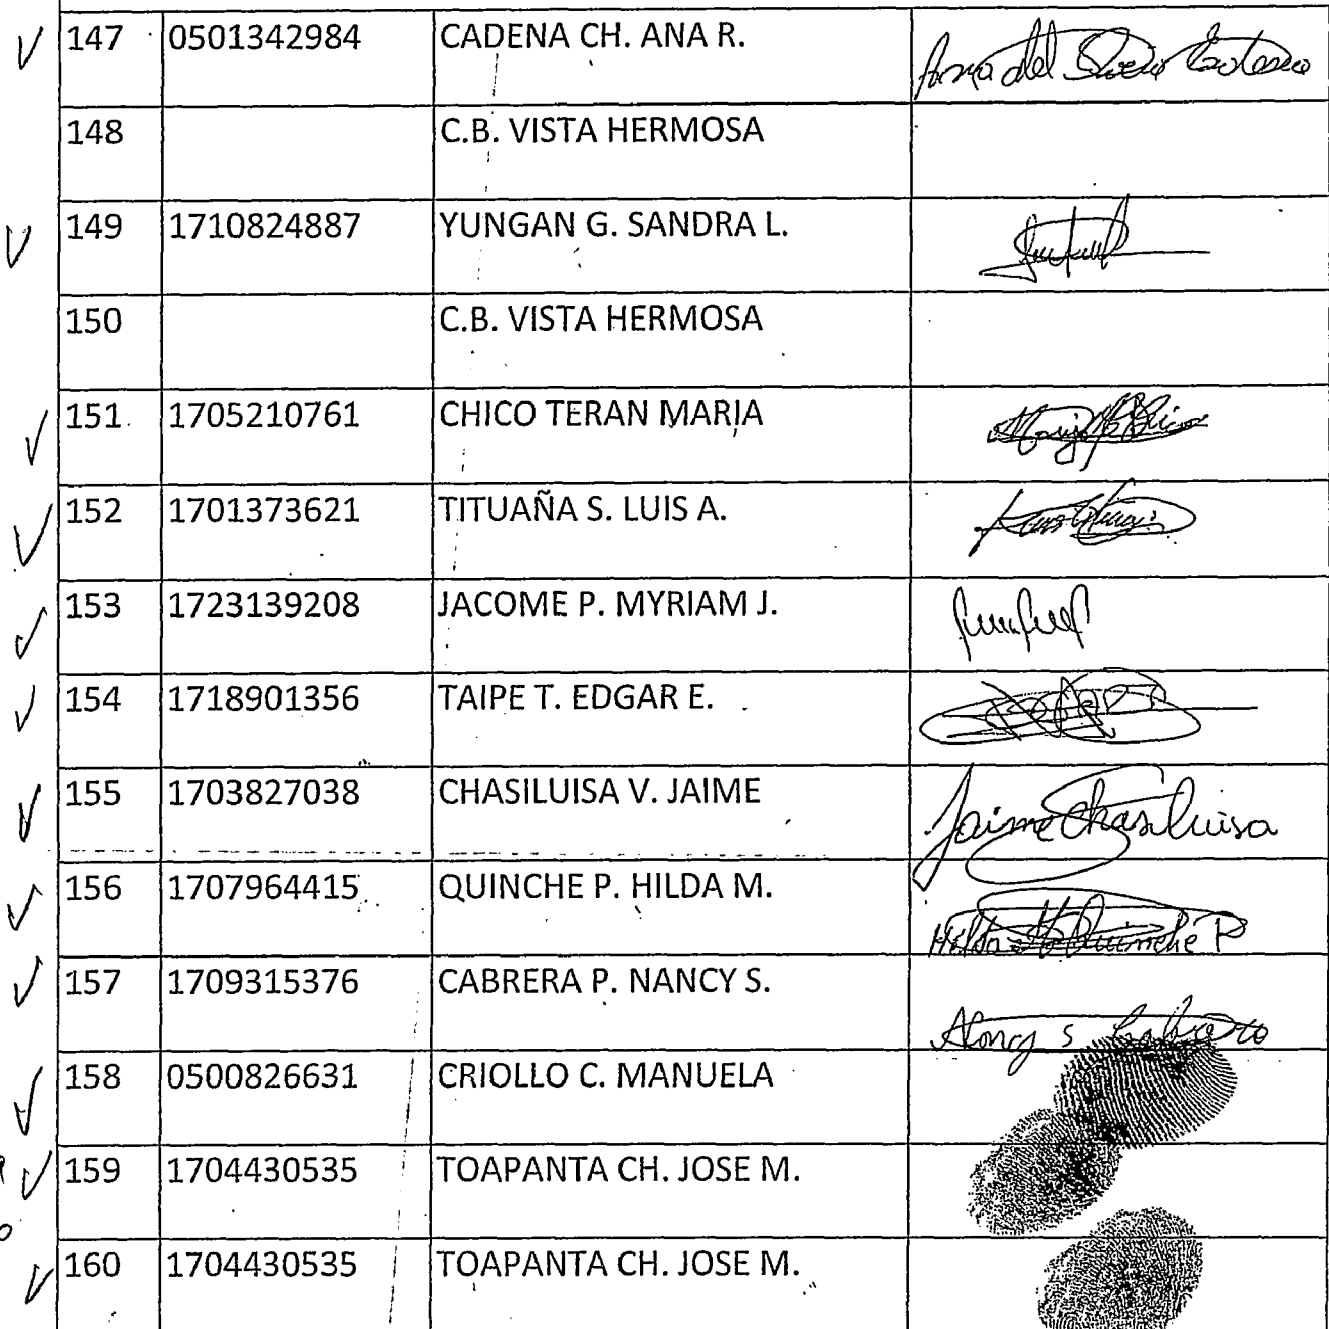 147 0501342984 CADENA CH. ANA R.
148 C.B. VISTA HERMOSA
149 1710824887 YUNGAN G. SANDRA L.
150 C.B. VISTA HERMOSA
151 1705210761 CHICO TERAN MARIA
152 1701373621 TITUAÑA S. LUIS A.
153 1723139208 JACOME P. MYRIAM J.
154 1718901356 TAIPE T. EDGAR E.
155 1703827038 CHASILUISA V. JAIME Jaime Chasiluisa
156 1707964415 QUINCHE P. HILDA M. Hilda M Quinche P
157 1709315376 CABRERA P. NANCY S. Nancy S
158 0500826631 CRIOLLO C. MANUELA
159 1704430535 TOAPANTA CH. JOSE M.
160 1704430535 TOAPANTA CH. JOSE M.